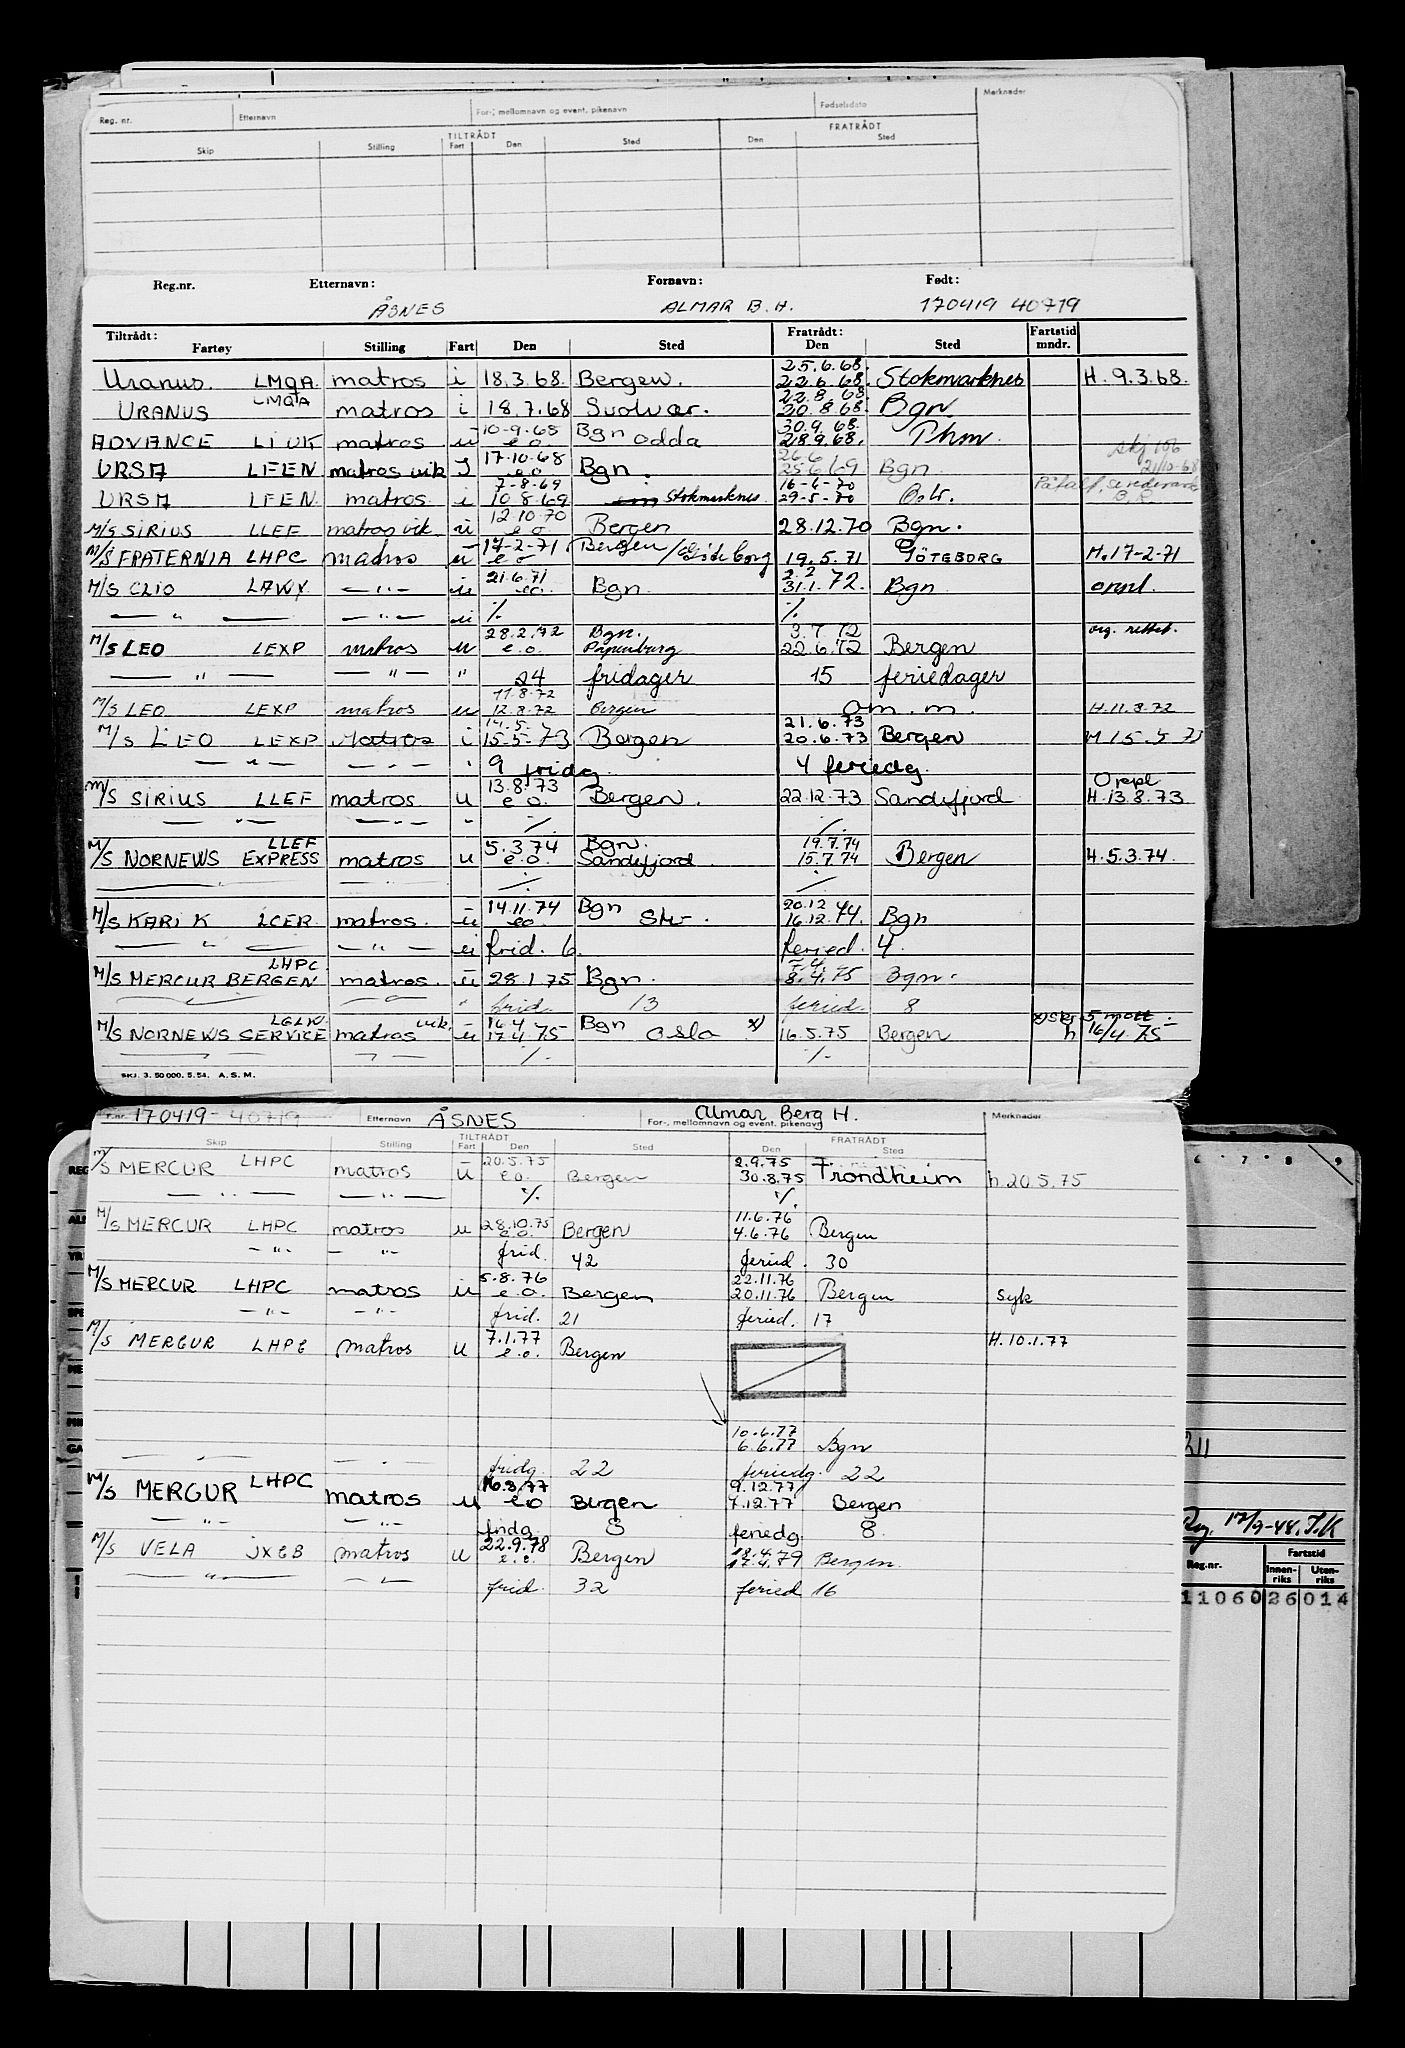 Reg. nr. Etternavn For-, mellomnavn og event. pikenavn Fødselsdato Merknader
TILTRÅDT FRATRÅDT
Skip Stilling Fart Den Sted Den Sted
Reg.nr. Etternavn: Fornavn: Født:
ÅSNES ALMAR B. H. 170419 40719
Tiltrådt: Fratrådt: Fartstid
Fartøy Stilling Fart Den Sted Den Sted mndr.
25.6.68.
Uranus. LMQA matros i 18.3.68. Bergen. 22.6.68. Stokmarknes H. 9.3.68.
LMQA 22.8.68.
URANUS matros i 18.7.68 Svolvær. 20.8.68. Bgn.
10-9-68 Bgn 30.9.68.
ADVANCE LIUK matros u e.o. odda 28.9.68. Thm.
17-10-68 26.6
URSA LFEN matros vik I e.o. Bgn. 25.6.69 Bgn. 21/10-68
7-8-69 16-6-70
URSA LFEN matros i 10.8.69 Stokmarknes. 29-5-70 Oslo.
12.10.70
M/S SIRIUS LLEF matros vik. u e.o. Bergen 28.12.70 Bgn.
17-2-71 Bergen
M/S FRATERNIA LHPC matros u e o /Göteborg 19.5.71 GÖTEBORG H. 17-2-71
21.6.71 2.2
M/S CLIO LAWY —"— u eo. Bgn. 31.1.72. Bgn. ompl.
— " — —"— u ./. ./.
28.2.72 Bgn. 3.7.72 org. rettet.
M/S LEO LEXP matros u e.o. Papenburg 22.6.72 Bergen
— " — — " — " 24 fridager 15 feriedager
11.8.72
M/S LEO LEXP matros u 12.8.72 Bergen om. m. H. 11.8.72
14.5. 21.6.73
M/S LEO LEXP Matros i 15-5-73 Bergen 20.6.73 Bergen H 15.5 73
— " — —"— " 9 fridg. 4 feriedg.
13.8.73 Ompl
M/S SIRIUS LLEF matros u e o. Bergen. 22.12.73 Sandefjord H. 13.8.73
— " — —"— " ./. ./.
LLEF 5.3.74 Bgn. 19.7.74
M/S NORNEWS EXPRESS matros u e.o. Sandefjord. 15.7.74 Bergen H. 5.3.74.
./. ./.
14.11.74 Bgn 20.12
M/S KARI K LCER. matros. u eo. 16.12.74. Bgn
— " — — " — u frid. 6. feried. 4.
LHPC. 7.4.
M/S MERCUR BERGEN matros. u 28.1.75 Bgn. 8.4.75 Bgn.
" frid. 13 feried. 8
LGLW. vik. 16.4 Bgn x) 5 mott.
M/S NORNEWS SERVICE matros u 17.4.75 Oslo x) 16.5.75 Bergen h 16/4.75
./. ./.
SKJ. 3. 50 000. 5. 54. A. S. M.
170419-40719 Etternavn ÅSNES Almar Berg H. For-, mellomnavn og event. pikenavn Merknader
TILTRÅDT FRATRÅDT
Skip Stilling Fart Den Sted Den Sted
20.5.75 2.9.75
M/S MERCUR LHPC matros u e.o. Bergen 30.8.75 Trondheim h. 20.5.75
— " — —"— ./. ./.
28.10.75 11.6.76
M/S MERCUR LHPC matros u e.o. Bergen 4.6.76 Bergen
—"— —"— frid. 42 feried. 30
5.8.76 22.11.76
M/S MERCUR LHPC matros u e.o. Bergen 20.11.76 Bergen Syk
—"— —"— frid. 21 feried. 17
7.1.77
M/S MERCUR LHPC matros u e.o. Bergen H. 10.1.77
10.6.77
6.6.77 Bgn
fridg 22 feriedg. 22
9.12.77
M/S MERCUR LHPC matros u e.o Bergen 7.12.77 Bergen
—"— —"— fridg. 8 feriedg. 8.
22.9.78 18.4.79
M/S VELA JXCB matros u e.o. Bergen 17.4.79 Bergen.
— " — —"— frid. 32 feried 16
6 7 8 9
311
Reg. 17/9-48. T.K
Reg.nr. Fartstid
Innenriks Utenriks
11060 26 014